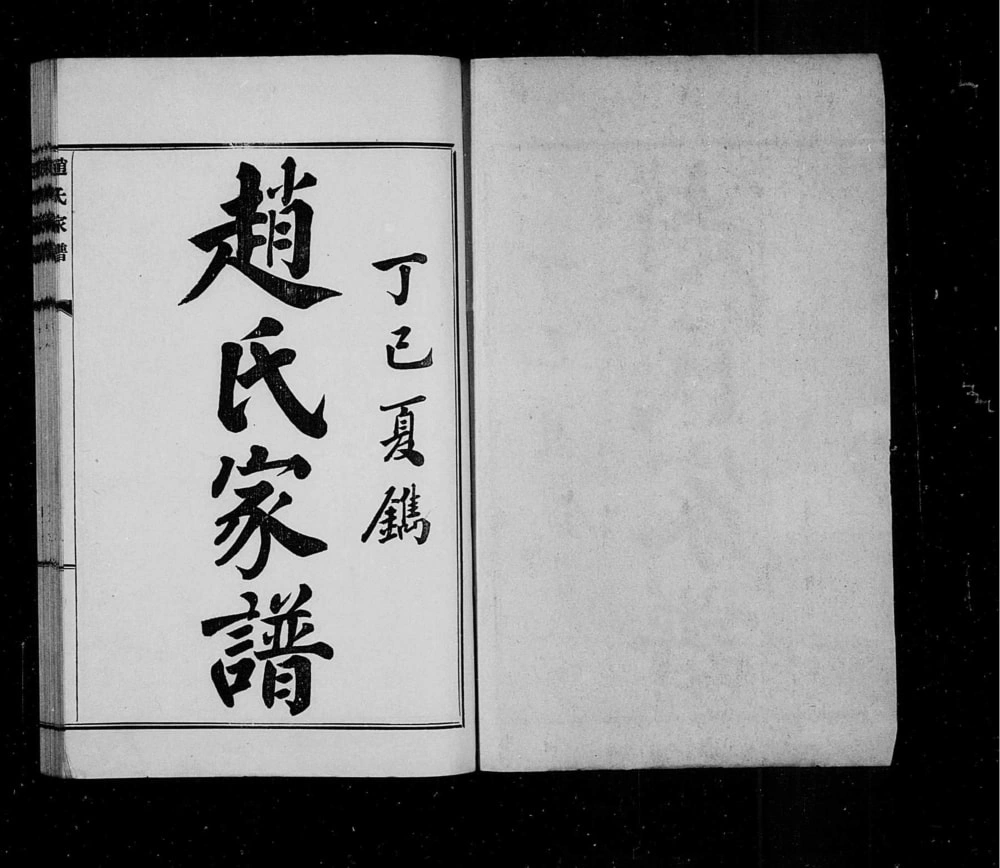 丁巳夏鐫
趙氏家譜
趙氏家譜